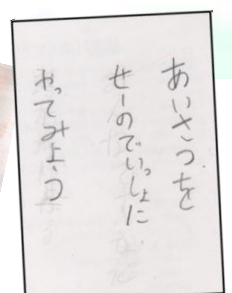 あいさつを
せーのでいっしょに
やってみよう